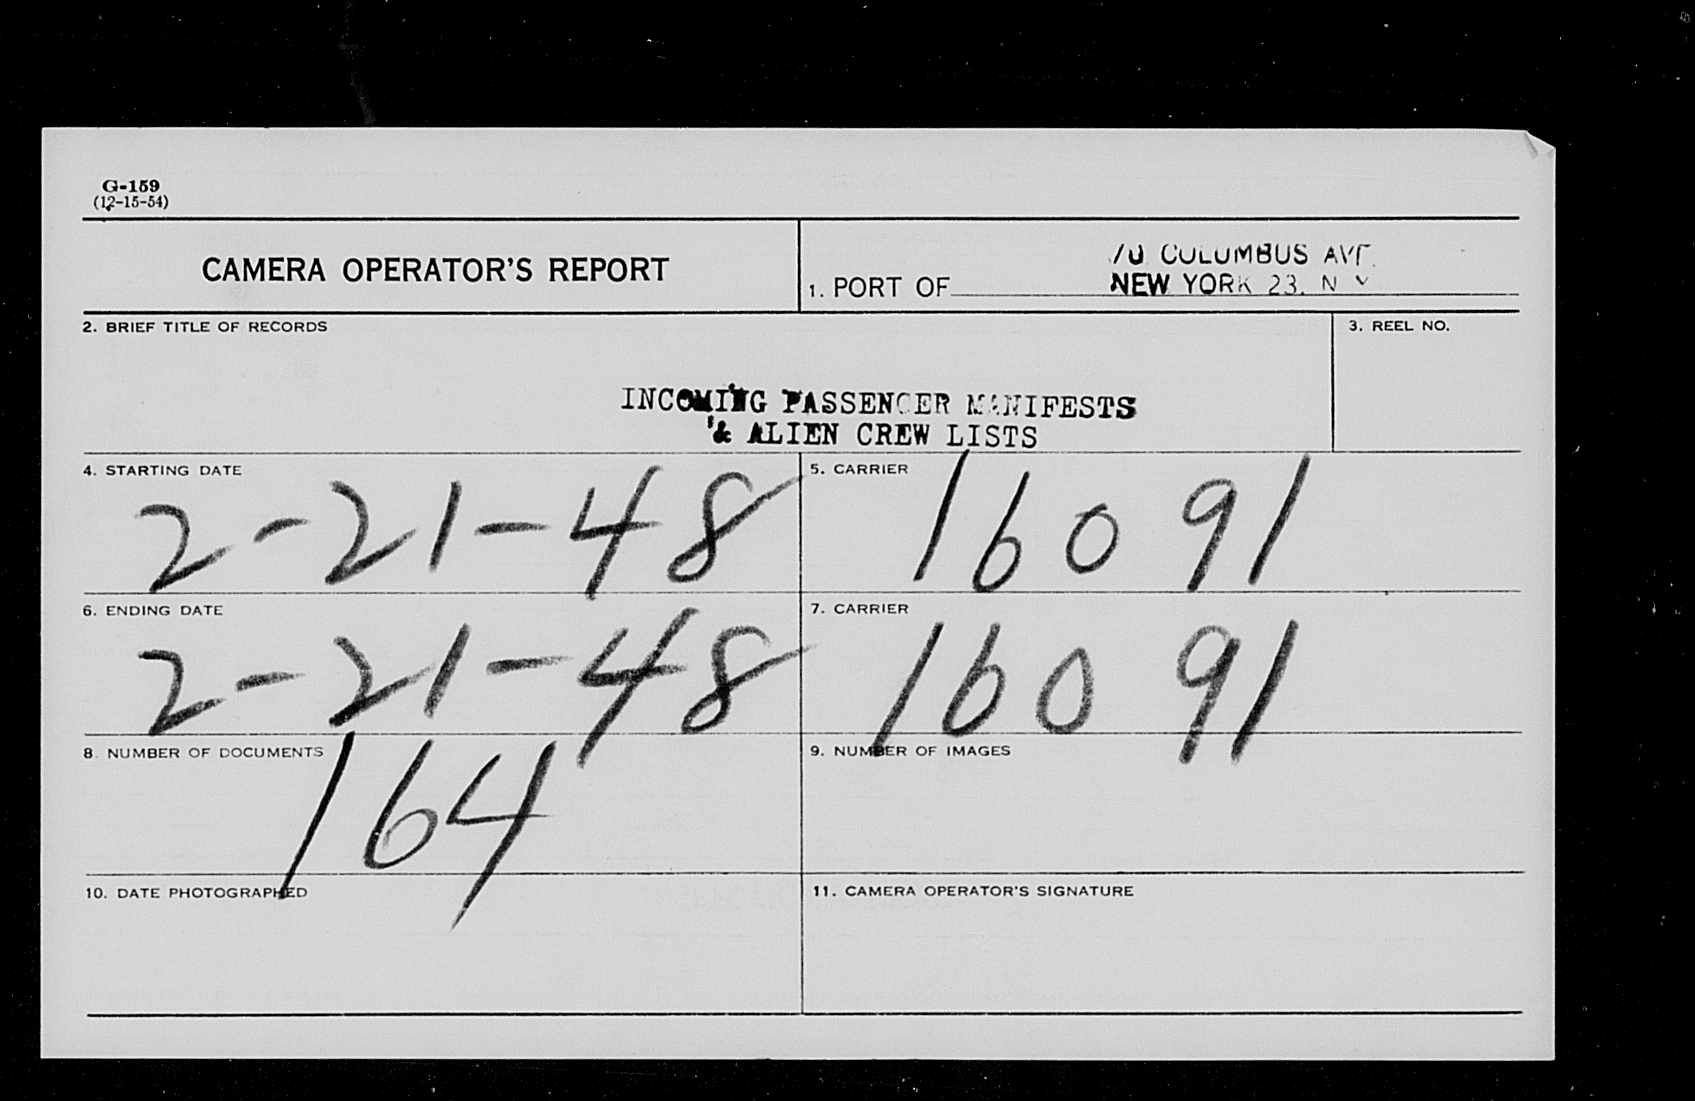 G-159
(12-15-54)
CAMERA OPERATOR'S REPORT
70 COLUMBUS AVE.
1. PORT OF NEW YORK 23, N Y
2. BRIEF TITLE OF RECORDS
3. REEL NO.
INCOMING PASSENGER MANIFESTS
& ALIEN CREW LISTS
4. STARTING DATE
2-21-48
5. CARRIER
16091
6. ENDING DATE
2-21-48
7. CARRIER
16091
8. NUMBER OF DOCUMENTS
164
9. NUMBER OF IMAGES
10. DATE PHOTOGRAPHED
11. CAMERA OPERATOR'S SIGNATURE